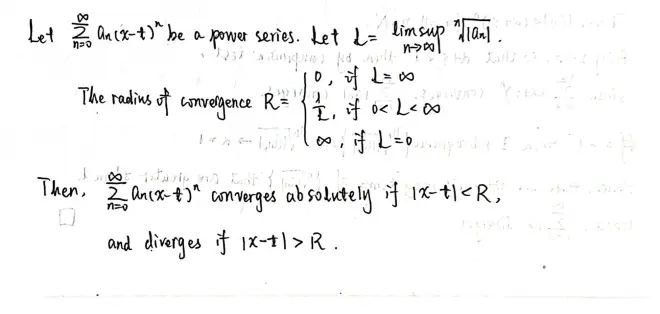 Let ∞∑n=0 an(x-t)ⁿ be a power series. Let L = lim sup n→∞ ⁿ√|an|.
The radius of convergence R = { 0, if L = ∞
1/L, if 0 < L < ∞
∞, if L = 0
Then, ∞∑n=0 an(x-t)ⁿ converges absolutely if |x-t| < R,
□ and diverges if |x-t| > R.